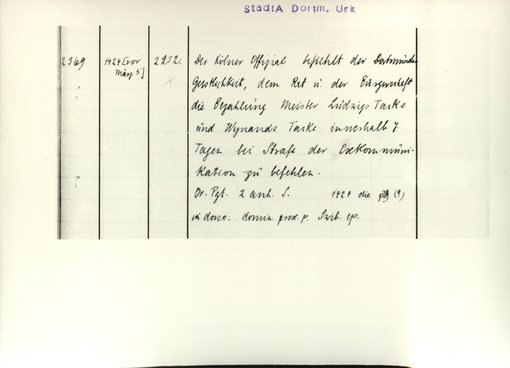 StadtA Dortm. Urk
2369 1424 [vor 2232. Der Kölner Offizial befiehlt der Dortmunder
März 5] Geistlichkeit, dem Rat u. der Bürgerschaft
die Bezahlung Meister Ludwigs Taske
und Wynands Taske innerhalb 7
Tagen bei Strafe der Exkommuni-
kation zu befehlen.
Or. Pgt. 2 anh. S. 1424 die (?)
in dorso: domin prox p.